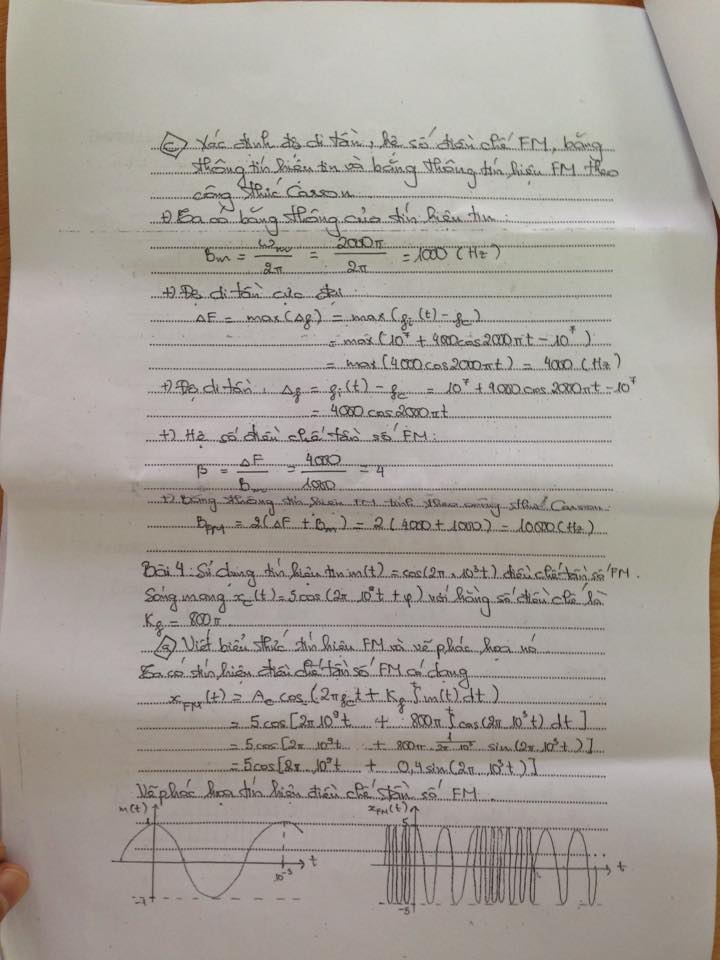 c) Xác định độ di tần, hệ số điều chế FM, băng
thông tín hiệu tin và băng thông tín hiệu FM theo
công thức Carson.
+) Ta có băng thông của tín hiệu tin:
Bm = ωm/2π = 2000π/2π = 1000 (Hz)
+) Độ di tần cực đại:
ΔF = max(Δf) = max(fi(t) - fc)
= max(10^7 + 4000cos2000πt - 10^7)
= max(4000cos2000πt) = 4000 (Hz)
+) Độ di tần: Δf = fi(t) - fc = 10^7 + 4000cos2000πt - 10^7
= 4000cos2000πt
+) Hệ số điều chế tần số FM:
β = ΔF/Bm = 4000/1000 = 4
+) Băng thông tín hiệu FM tính theo công thức Carson:
BFM = 2(ΔF + Bm) = 2(4000 + 1000) = 10000 (Hz)
Bài 4: Sử dụng tín hiệu tin m(t) = cos(2π.10^3t) điều chế tần số FM.
Sóng mang xc(t) = 5cos(2π10^9t + φ) với hằng số điều chế là
Kf = 800π.
a) Viết biểu thức tín hiệu FM và vẽ phác họa nó
Ta có tín hiệu điều chế tần số FM có dạng
xFM(t) = Ac cos(2πfct + Kf ∫^t m(t)dt)
= 5cos[2π10^9t + 800π ∫^t cos(2π10^3t) dt]
= 5cos[2π10^9t + 800π 1/2π10^3 sin(2π10^3t)]
= 5cos[2π10^9t + 0,4sin(2π10^3t)]
Vẽ phác họa tín hiệu điều chế tần số FM.
m(t) xFM(t)
1 5
10^-3 t t
-1 -5